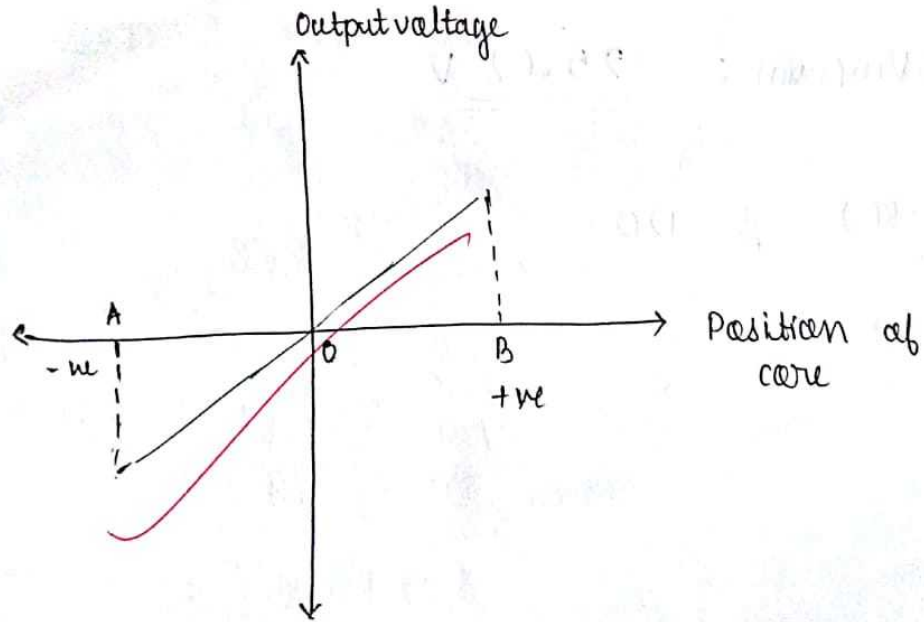 Output voltage
A
- ve
O
B
+ve
Position of
core